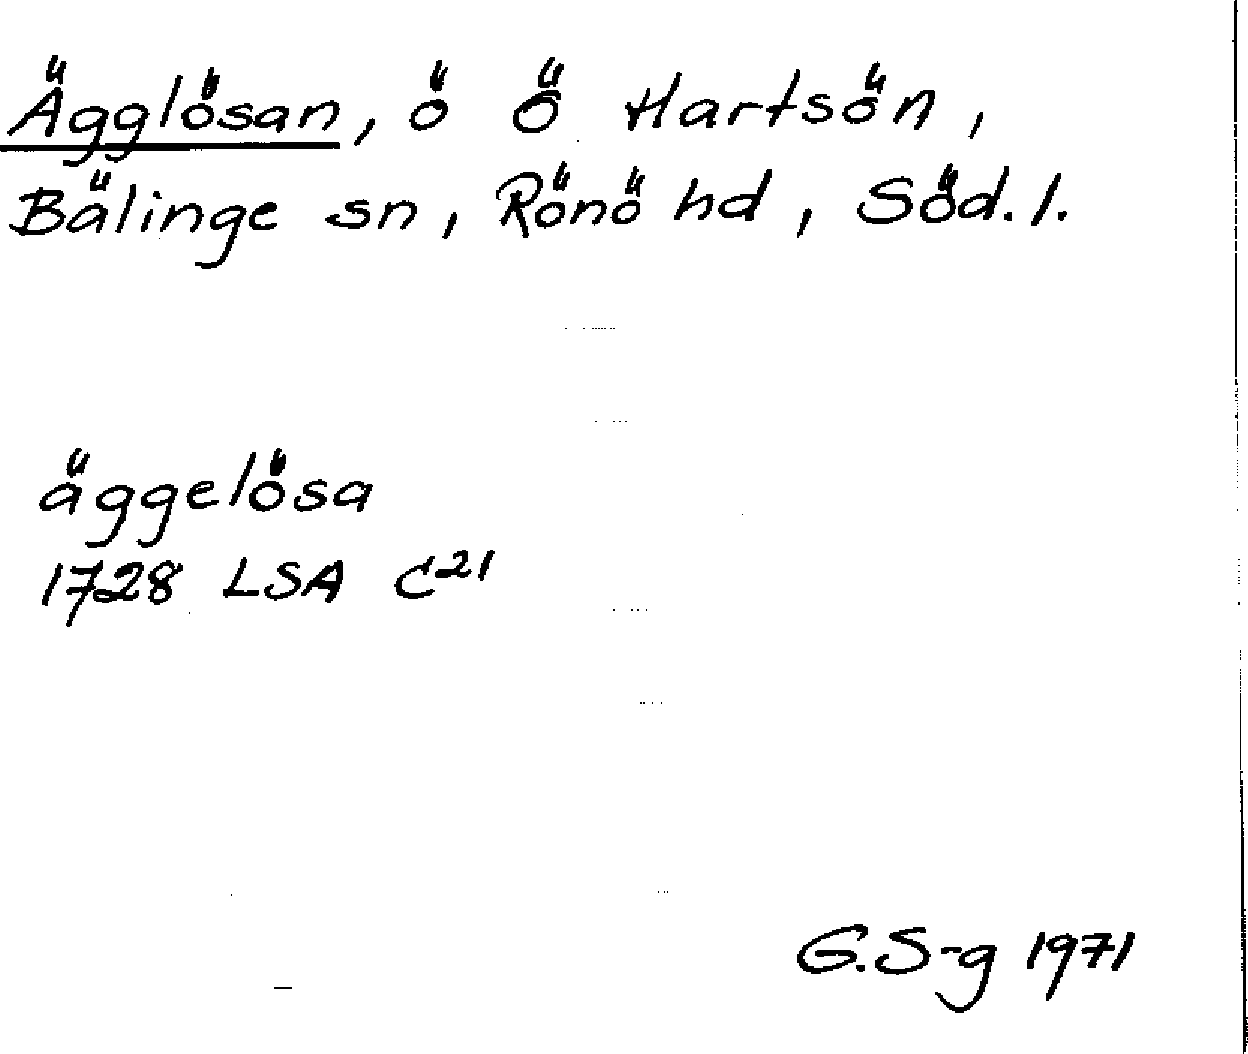 Ägglösan, ö Ö Hartsön,
Bälinge sn, Rönö hd, Söd.l.
äggelösa
1728 LSA C21
G.S-g 1971